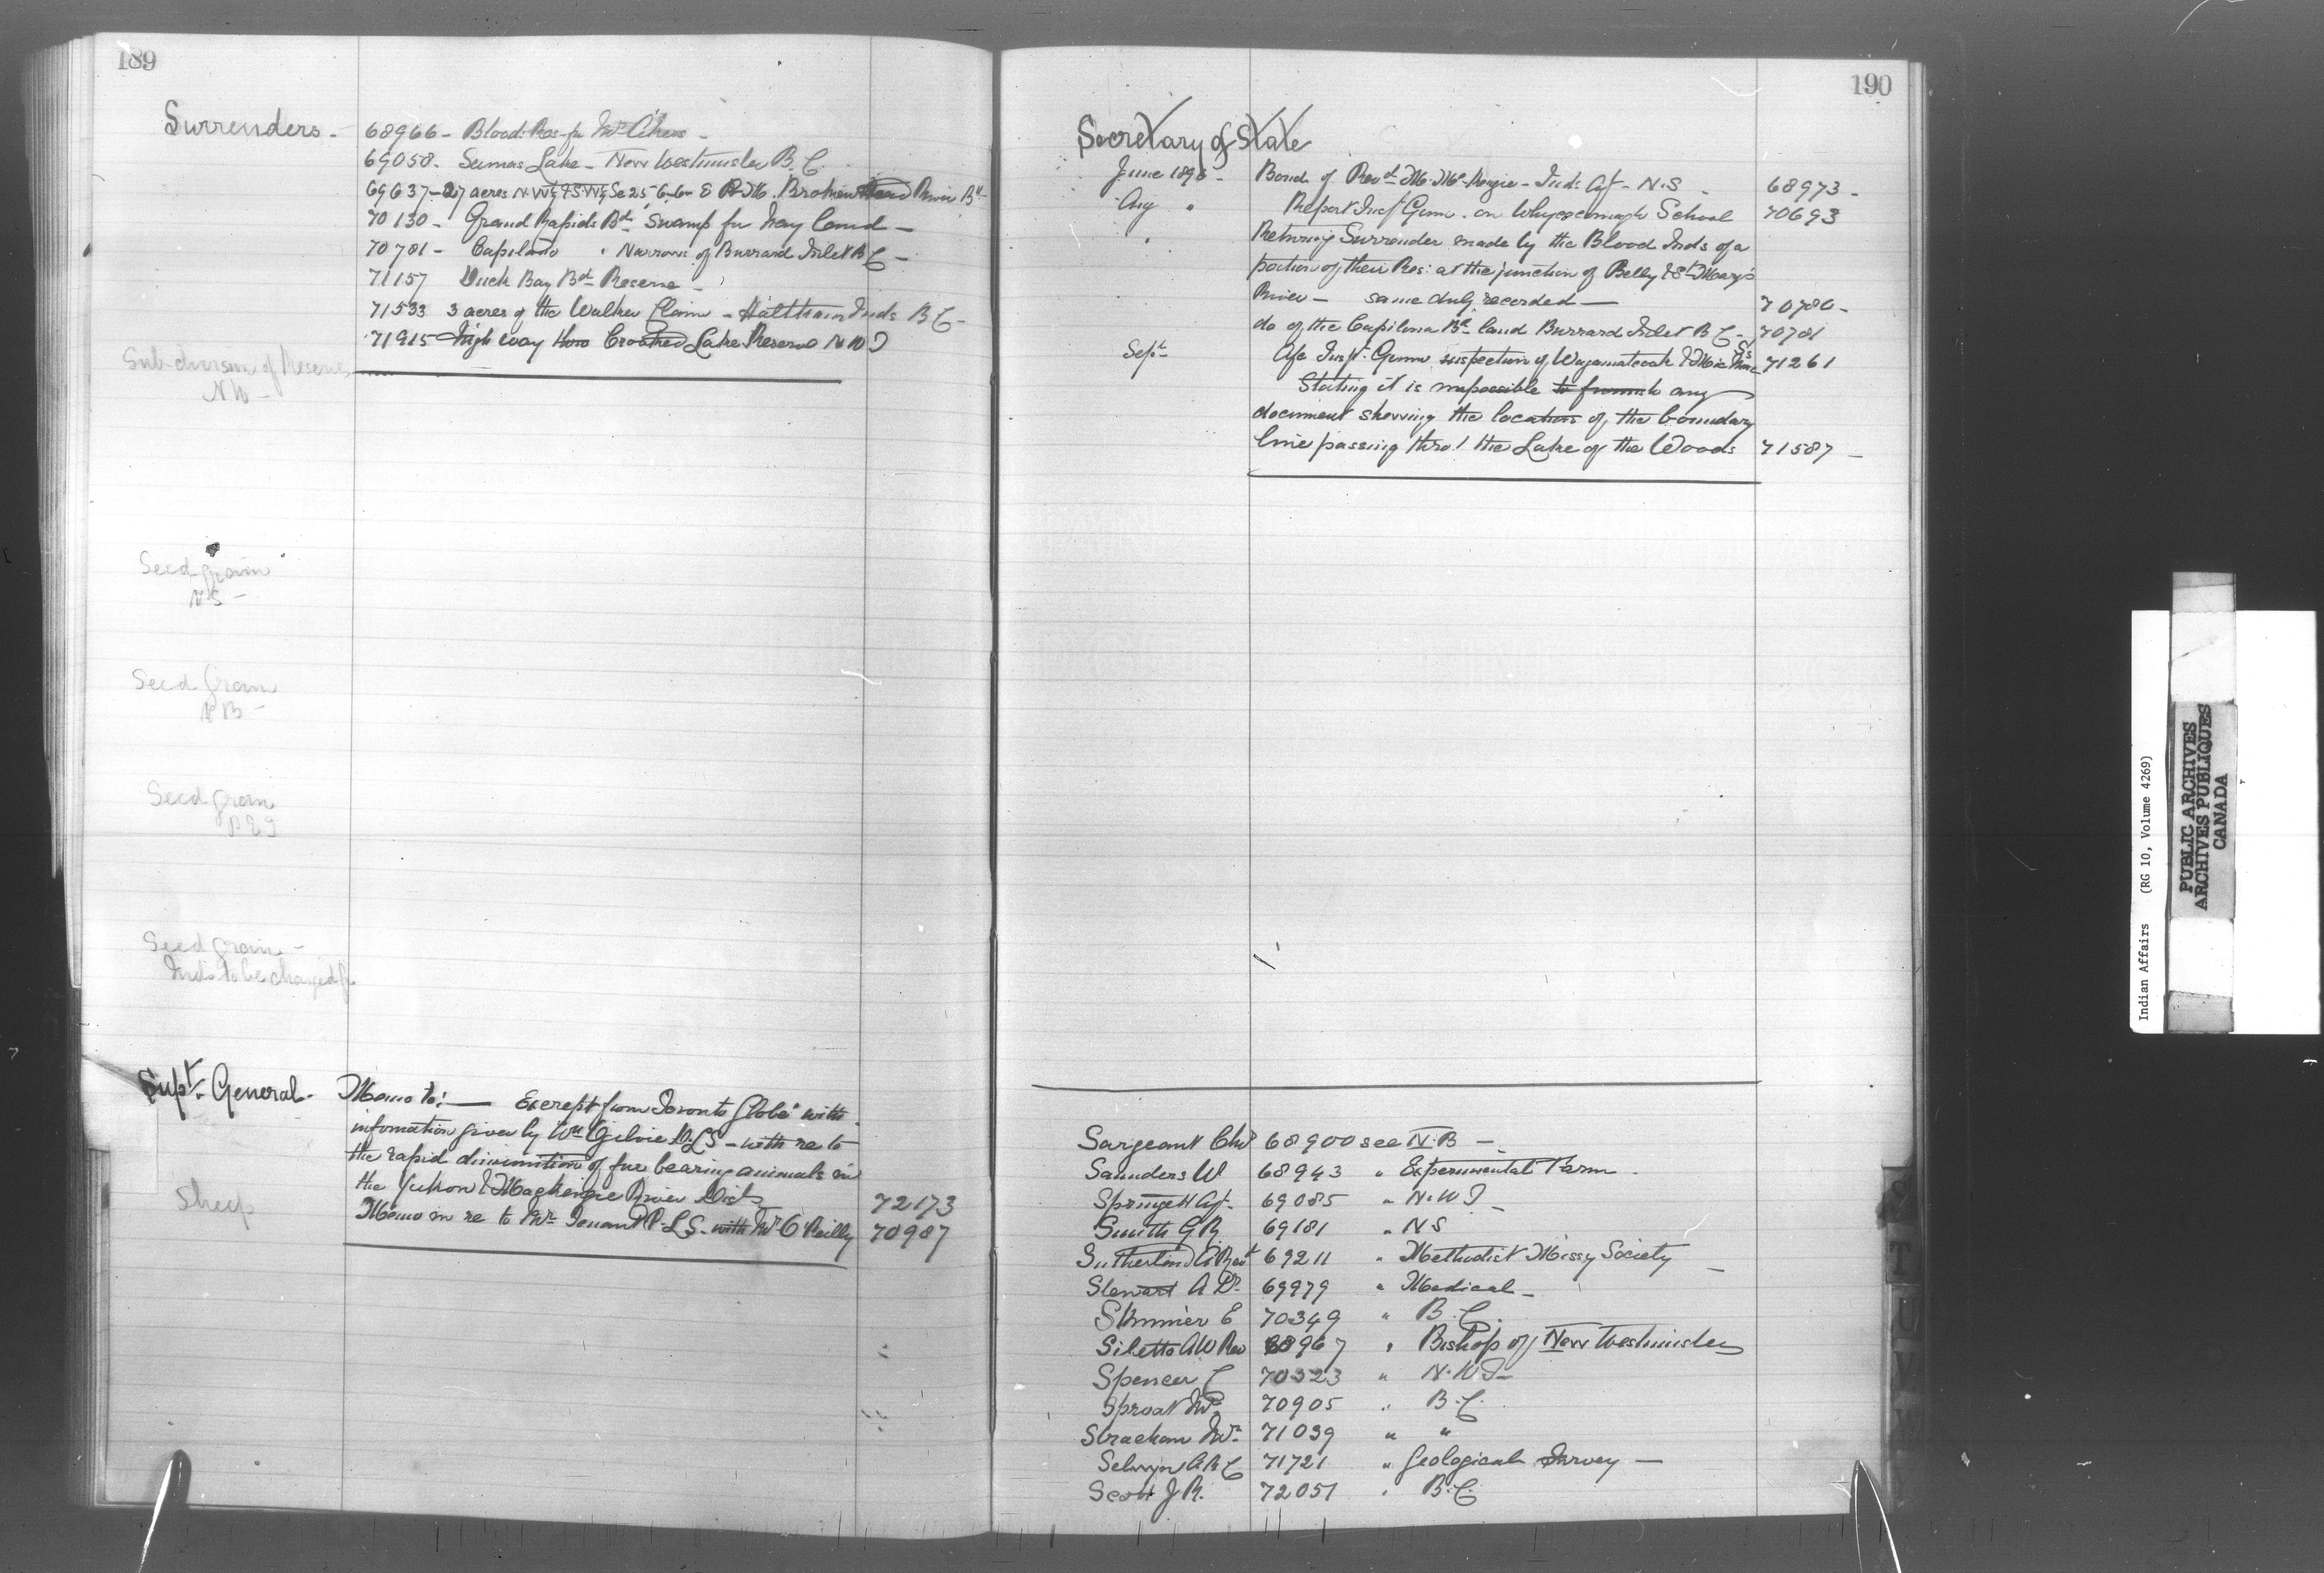 189
Surrenders - 68966 - Blood Res fr Mr Akers -
69058 - Sumas Lake - New Westminster B.C.
69637 - 27 acres N.W¼ & S.W¼ Se 25, 6. 6 E P.M. Broken Head River Bd
70130 - Grand Rapids Bd Swamp for hay land -
70781 - Capilano " Narrows of Burrard Inlet B C -
71157 Duck Bay Bd Reserve -
71533 3 acres of the Walker Claim - Inds B C -
71915 High way thro Crooked Lake Reserve N W T
Sub-division of Reserves
N W -
Seed grain
N S -
Seed Grain
N B -
Seed grain
P E I
Seed grain -
Inds to be charged fr
Supt General - Memo to: - Excerpt from Toronto Globe with
information given by Wm Ogilvie D.L.S - with re to
the rapid diminution of fur bearing animals in
the Yukon & Mackenzie River Dists 72173
Sheep
Memo in re to Mr P.L.S. with Mr O'Reilly 70987
190
Secretary of State
June 1896 - Bond of Revd M. McKenzie - Inds Agt - N.S - 68973 -
Aug " Report Inspt Gunn on Whycocomagh School 70693
" Returning Surrender made by the Blood Inds of a
portion of their Res: at the junction of Belly & St Mary's
River - same duly recorded - 70780 -
do of the Capilona Bd land Burrard Inlet B C - 70781
Sept a/c Inspt Gunn inspection of Wagamatcook & 71261
Stating it is impossible to furnish any
document showing the location of the boundary
line passing thro' the Lake of the Woods 71587 -
Sargeant Chs 68900 see N.B -
Saunders W 68943 " Experimental Farm -
Springett Agt - 69085 " N.W.T -
Smith G R 69181 " N S
Sutherland A Revd 69211 " Methodist Missy Society -
Stewart A Dr 69979 " Medical -
Skinner E 70349 " B.C.
Siletto A W Rev 68967 " Bishop of New Westminster
Spencer C 70323 " N.W.T -
Sproat Mr 70905 " B.C.
Strachan Mr 71039 " "
Selwyn A R C 71721 " Geological Survey -
Scott J R. 72051 " B.C.
S
T
U
Indian Affairs (RG 10, Volume 4269)
PUBLIC ARCHIVES
ARCHIVES PUBLIQUES
CANADA